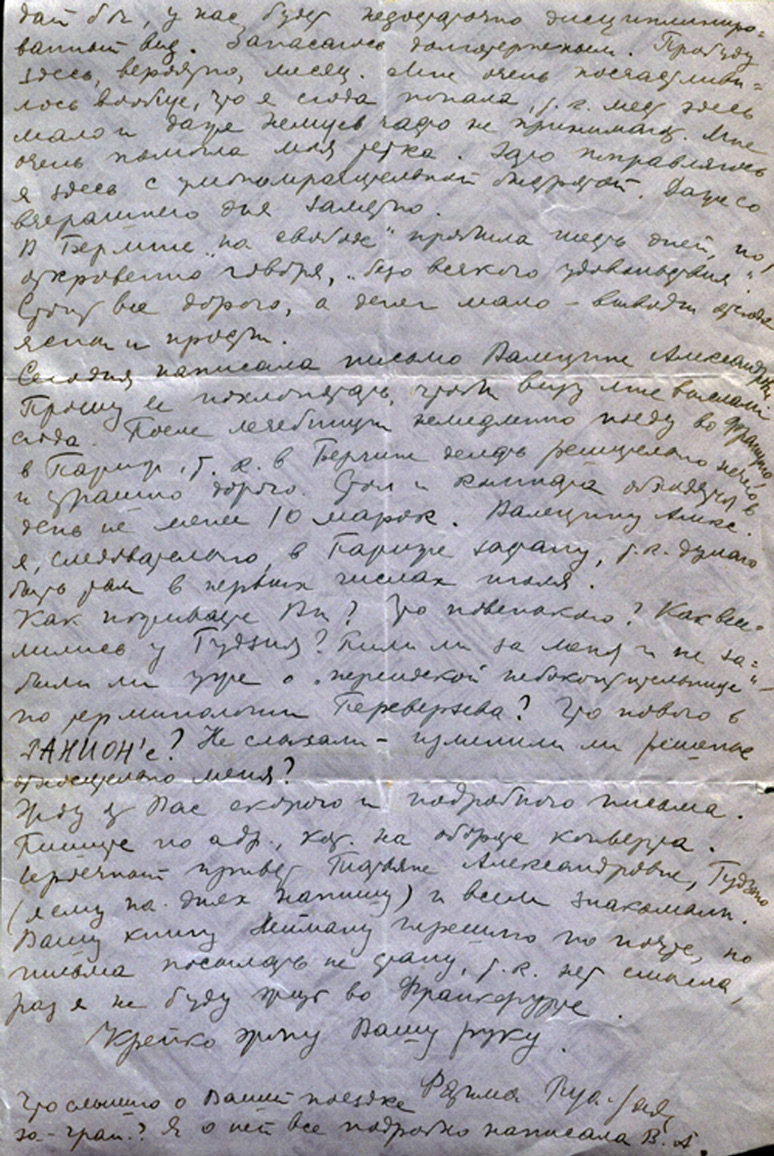 дай бог, у нас будет недостаточно дисциплиниро-
ванный вид. Запасаюсь долготерпеньем. Пробуду
здесь, вероятно, месяц. Мне очень посчастливи-
лось вообще, что я сюда попала, т.к. мест здесь
мало и даже немцев часто не принимают. Мне
очень помогла моя тетка. Зато поправляюсь
я здесь с умопомрачительной быстротой. Даже со
вчерашнего дня заметно.
В Берлине „на свободе" прожила шесть дней, но,
откровенно говоря, „безо всякого удовольствия".
Стоит все дорого, а денег мало – выводы отсюда
ясны и просты.
Сегодня написала письмо Валентине Александр.
Прошу ее похлопотать, чтобы визу мне выслали
сюда. После лечебницы немедленно поеду во Францию
в Париж, т.к. в Берлине делать решительно нечего
и страшно дорого. Стол и комната обходятся в
день не менее 10 марок. Валентину Алекс.
я, следовательно, в Париже застану, т.к. думаю
быть там в первых числах июля.
Как поживаете Вы? Что новенького? Как весе-
лились у Гудзия? Пили ли за меня и не за-
были ли уже о „персидской небокоптительнице" –
по терминологии Переверзева? Что нового в
РАНИОН'е? Не слыхали – изменили ли решение
относительно меня?
Жду от Вас скорого и подробного письма.
Пишите по адр., кот. на обороте конверта.
Сердечный привет Татьяне Александровне, Гудзию
(я ему на-днях напишу) и всем знакомым.
Вашу книгу Нейману перешлю по почте, но
письма посылать не стану, т.к. нет смысла,
раз я не буду жить во Франкфурте.
Крепко жму Вашу руку.
Фатма
Что слышно о Вашей поездке
за-гран.? Я о ней все подробно написала В.А.